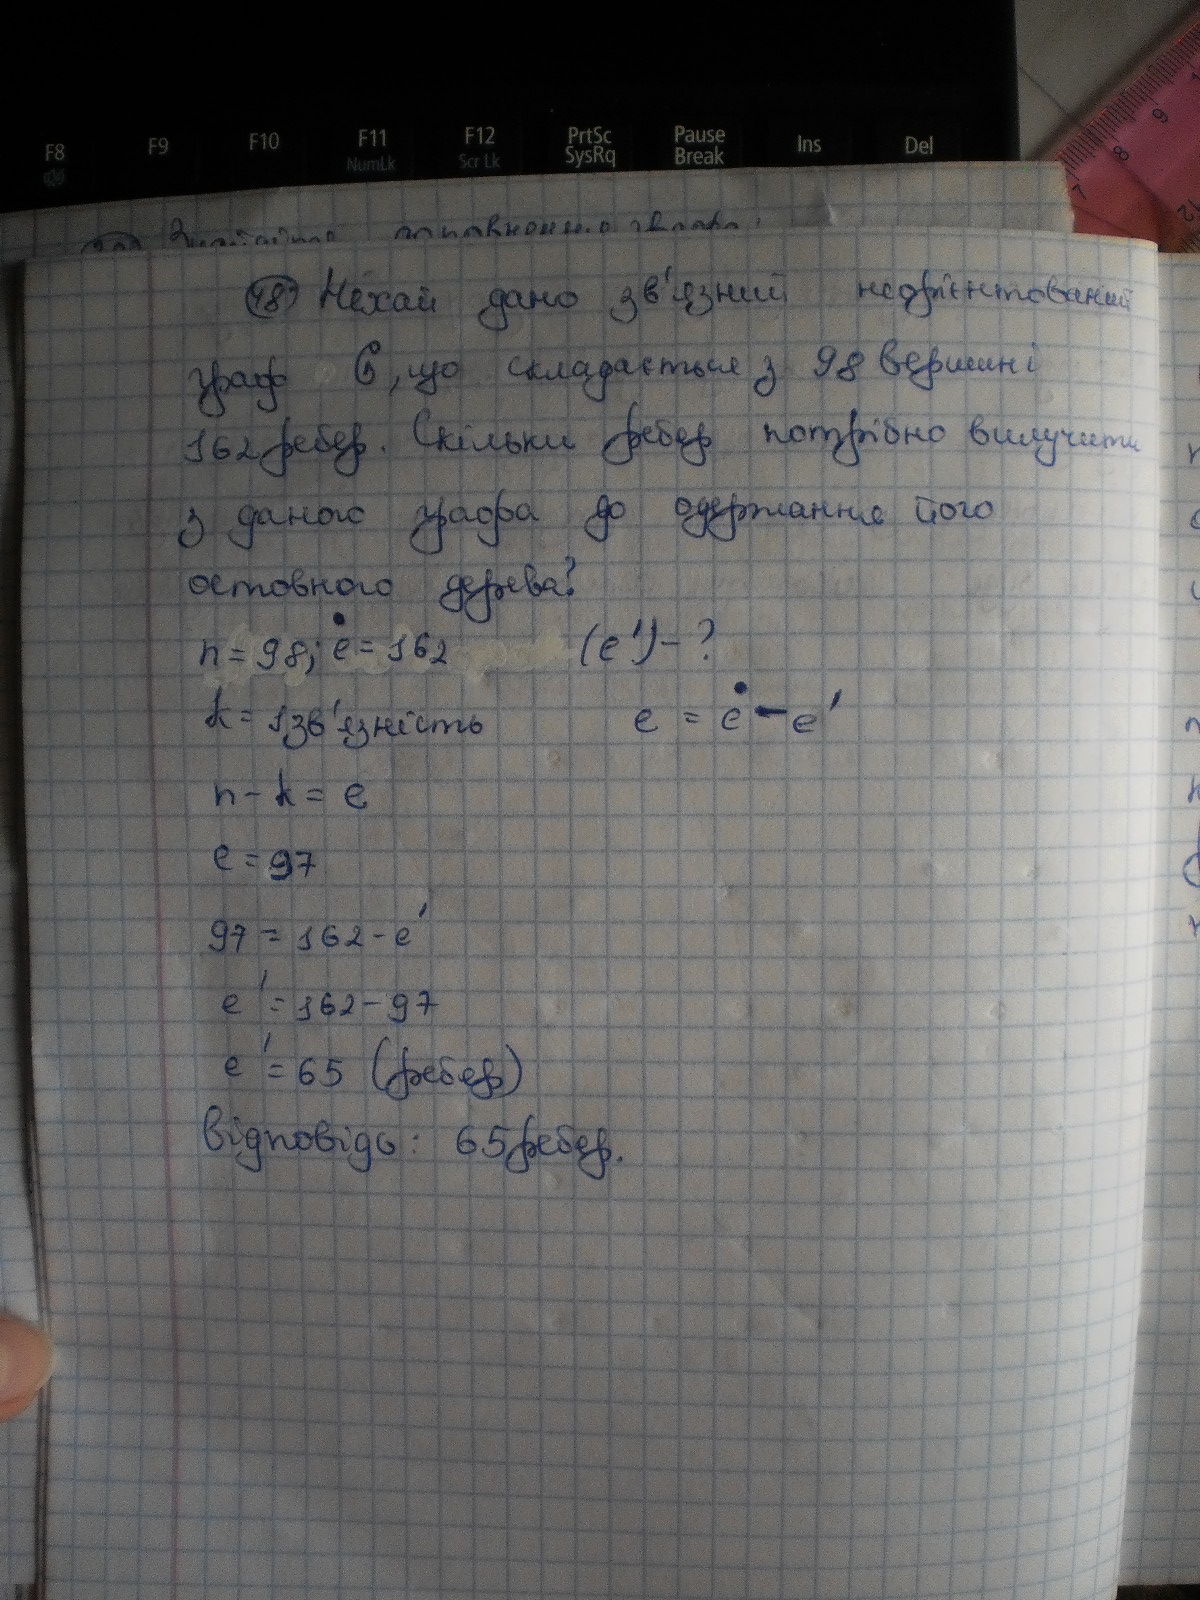 F8 F9 F10 F11 F12 PrtSc Pause Ins Del
NumLk Scr Lk SysRq Break
48) Нехай дано зв'язний неорієнтований
граф G, що складається з 98 вершин і
162 ребер. Скільки ребер потрібно вилучити
з даного графа до одержання його
остовного дерева?
n = 98; ė = 162 (e') - ?
k = 1 зв'язність e = ė - e'
n - k = e
e = 97
97 = 162 - e'
e' = 162 - 97
e' = 65 (ребер)
Відповідь: 65 ребер.
7 8 9